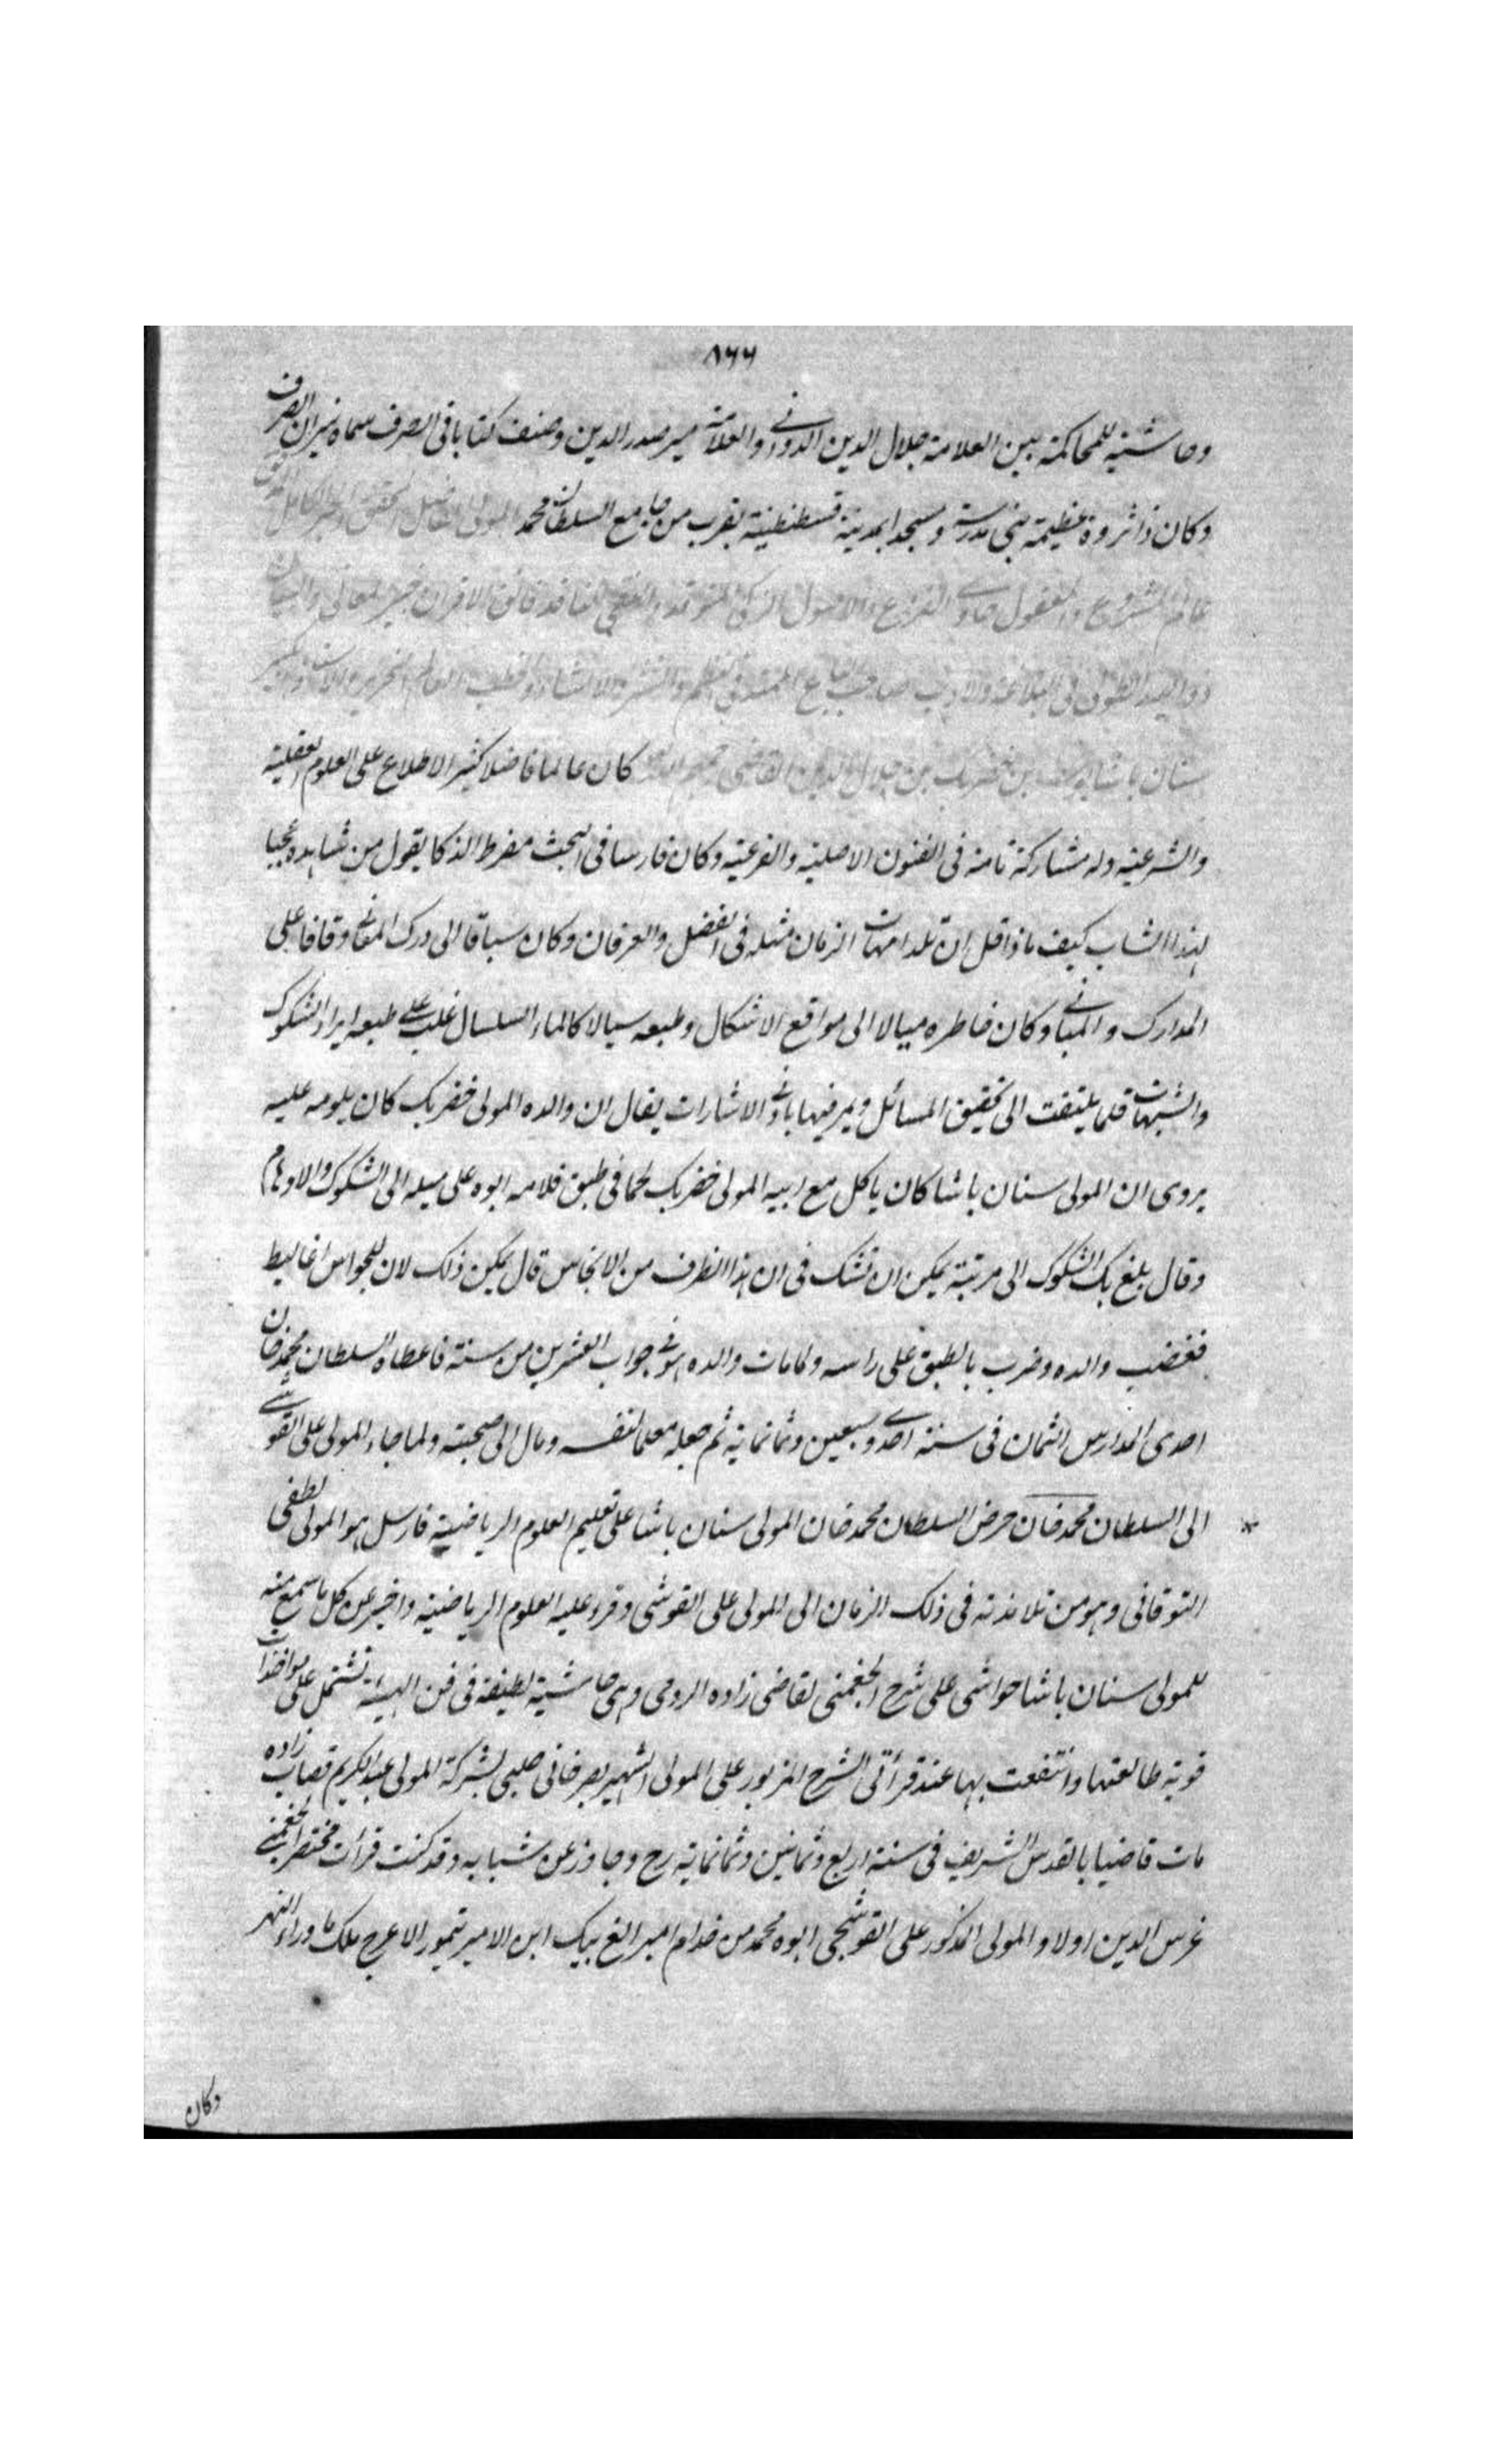 ٨٦٦
وحاشية للمحاكمة بين العلامة جلال الدين الدوانى والعلامة ميرصدرالدين وصنف كتابا فى الصرف سماه ميزان الصرف
وكان ذا ثروة عظيمة بنى مدرسة ومسجدا بمدينة قسطنطينية بقرب من جامع السلطان محمد المولى الفاضل المحقق الكامل
عالم المشروع والمعقول حاوى الفروع والاصول فائق الاقران المعانى والبيان
ذو اليد الطولى فى البلاغة والادب صاحب الباع الممتد فى النظم والنثر والانشاء
سنان باشا يوسف بن خضربك بن جلال الدين القاضى كان عالما فاضلا كثير الاطلاع على العلوم العقلية
والشرعية وله مشاركة تامة فى الفنون الاصلية والفرعية وكان فارسا فى البحث مفرط الذكا يقول من شاهده عجبا
لهذا الشاب كيف ماذا قل ان تلد امهات الزمان مثله فى الفضل والعرفان وكان سباقا الى درك المعانى وقافا على
المدارك والمبانى وكان خاطره ميالا الى مواقع الاشكال وطبعه سيالا كالماء السلسال غلب على طبعه ايراد الشكوك
والشبهات قلما يلتفت الى تحقيق المسائل ويمر فيها بادنى الاشارات يقال ان والده المولى خضربك كان يلومه عليه
يروى ان المولى سنان باشا كان ياكل مع ابيه المولى خضربك لحما فى طبق فلامه ابوه على ميله الى الشكوك والاوهام
وقال بلغ بك الشكوك الى مرتبة يمكن ان تشك فى ان هذا الظرف من الانحاس قال يمكن ذلك لان للحواس اغاليط
فغضب والده وضرب بالطبق على راسه ولما مات والده هو فى جواب العشرين من سنة فاعطاه السلطان محمدخان
احدى المدارس الثمان فى سنة احدى وسبعين وثمانمائة ثم جعله معلما لنفسه ومال الى صحبته ولما جاء المولى على القوشى
الى السلطان محمدخان حرض السلطان محمدخان المولى سنان باشا على تعليم العلوم الرياضية فارسل هو المولى لطفى
التوقانى وهو من تلامذته فى ذلك الزمان الى المولى على القوشى وقرء عليه العلوم الرياضية واخبر عن كل ما سمع منه
للمولى سنان باشا حواشى على شرح الجغمنى لقاضى زاده الرومى وهى حاشية لطيفة فى فن الهيأة تشتمل على مواخذات
قوية طالعتها وانتفعت بها عند قرأتى الشرح المزبور على المولى الشهير بصرخانى چلبى بشركة المولى عبدالكريم قصاب زاده
مات قاضيا بالقدس الشريف فى سنة اربع وثمانين وثمانمائة رح وجاوز عن شبابه وقد كنت قرات مختصر الجغمنى
غرس الدين اولا والمولى المذكور على القوشجى ابوه محمد من خدام امير الغ بيك ابن الامير تيمور الاعرج ملك ماوراء النهر
وكان